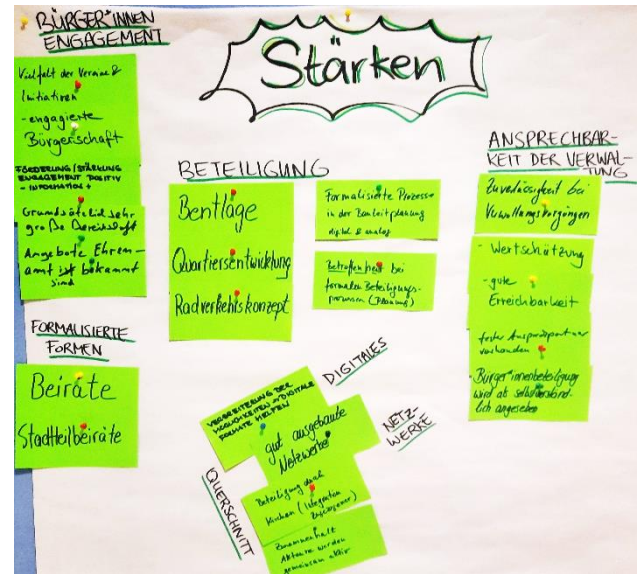 BÜRGER*INNEN
ENGAGEMENT
Vielfalt der Vereine &
Initiativen
- engagierte
Bürgerschaft
FÖRDERUNG/STÄRKUNG
ENGAGEMENT POSITIV
- INFORMATION +
Grundsätzlich sehr
große Bereitschaft
Angebote Ehren-
amt ist bekannt
sind
FORMALISIERTE
FORMEN
Beiräte
Stadtteilbeiräte
Stärken
BETEILIGUNG
Bentlage
Quartiersentwicklung
Radverkehrskonzept
Formalisierte Prozesse
in der Bauleitplanung
digital & analog
Betroffenheit bei
formalen Beteiligungs-
prozessen (Planung)
ANSPRECHBAR-
KEIT DER VERWAL-
TUNG
Zuverlässigkeit bei
Verwaltungsvorgängen
- Wertschätzung
- gute
Erreichbarkeit
fester Ansprechpartner
vorhanden
- Bürger*innenbeteiligung
wird als selbstverständ-
lich angesehen
DIGITALES
VERBREITERUNG DER
MÖGLICHKEITEN → DIGITALE
FORMATE HELFEN
NETZ-
WERKE
gut ausgebaute
Netzwerke
QUERSCHNITT
Beteiligung durch
Kirchen (Integration
Zusammenhalt
Akteure werden
gemeinsam aktiv